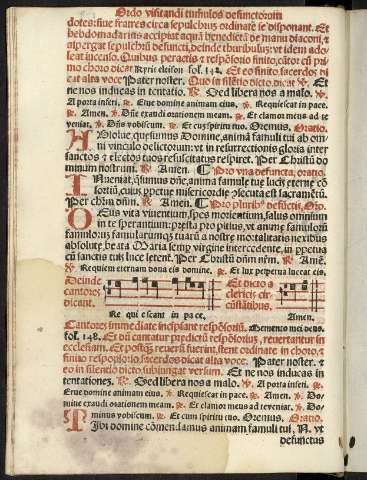 Ordo visitandi tumulos defunctorum
dotes: siue fratres circa sepulchrus ordinate se disponant. Et
hebdomadarius accipiat aquā benedictā de manu diaconi, &
aspergat sepulchrū defuncti, deinde thuribulus: vt idem ado-
leat incenso. Quibus peractis & respōsorio finito, cātor cū pri-
mo choro dicat Kyrie eleison fol. 142. Et eo finito, sacerdos di
cat alta voce Pater noster. Quo in silētio dicto, dicat ℣. Et
ne nos inducas in tentatio. ℟. Sed libera nos a malo. ℣.
A porta inferi. ℟. Erue domine animam eius. ℣. Requiescat in pace.
℟. Amen. ℣. Dñe exaudi orationem meam. ℟. Et clamor meus ad te
veniat. ℣. Dñs vobiscum. ℟. Et cū spiritu tuo. Oremus. Oratio.
Absolue, quesumus Domine, animā famuli tui ab om
ni vinculo delictorum: vt in resurrectionis gloria inter
sanctos & electos tuos resuscitatus respiret. Per Christū do
minum nostrum. ℟. Amen. ¶ Pro vna defuncta, oratio.
INueniat, q̄sumus dñe, anima famule tue lucis eterne cō
sortiū, cuius ppetue misericordię ꝯsecuta est sacramētū.
Per chrm dñm. ℟. Amen. ¶ Pro pluribꝰ defūctis, Oro.
DEus vita viuentium, spes morientium, salus omnium
in te sperantium: presta pro pitius, vt animę famulorū
famularumqꝫ tuarū a nostrę mortalitatis nexibus
absolutę, beata Maria semp virgine intercedente, in ppetua
cū sanctis tuis luce letent. Per Christū dnm nēm. ℟. Amē.
℣. Requiem eternam dona eis domine. ℟. Et lux perpetua luceat eis.
Deinde
cantores
dicant.
Re qui e scant in pa ce.
Et dicto a
clericis cir-
cūstātibus.
Amen.
Cantores immediate incipiant respōsoriū. Memento mei deus.
fol. 148. Et dū cantatur predictū respōsorius, reuertantur in
ecclesiam. Et postqꝫ reuersi fuerint, stent ordinate in choro, &
finito respōsorio, sacerdos dicat alta voce. Pater noster. &
eo in silentio dicto subiungat versum. Et ne nos inducas in
tentationez. ℟. Sed libera nos a malo. ℣. A porta inferi. ℟.
Erue domine animam eius. ℣. Requiescat in pace. ℟. Amen. ℣. Do-
mine exaudi orationem meam. ℟. Et clamor meus ad te veniat. ℣. Do-
minus vobiscum. ℟. Et cum spiritu tuo. Oremus. Oratio.
TIbi domine cōmendamus animam famuli tui, N. vt
defunctus